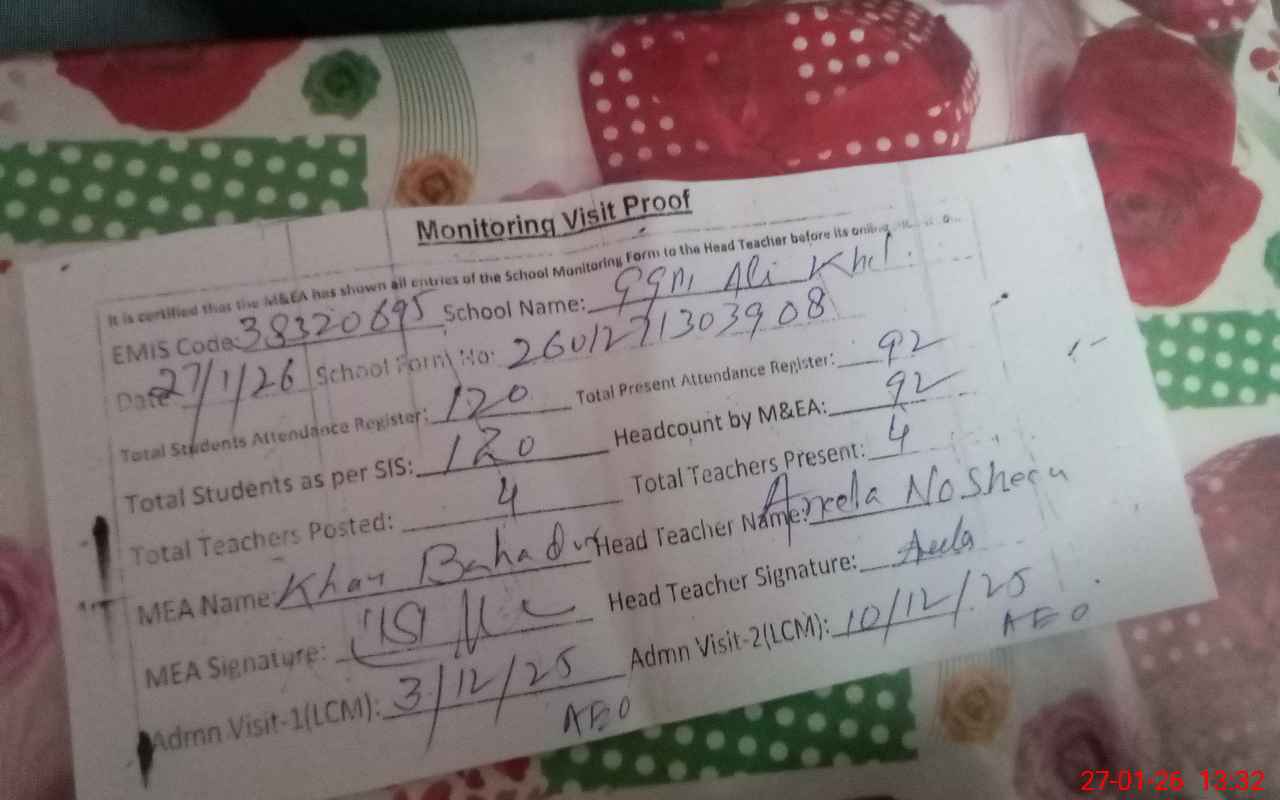 Monitoring Visit Proof
It is certified that the M&EA has shown all entries of the School Monitoring Form to the Head Teacher before its online
EMIS Code: 38320695 School Name: GGM Ali Khel
Date 27/1/26 School Form No: 26012713039 08
Total Students Attendance Register: 120 Total Present Attendance Register: 92
Total Students as per SIS: 120 Headcount by M&EA: 92
Total Teachers Posted: 4 Total Teachers Present: 4
MEA Name: Khan Bahadur Head Teacher Name: Nosheen
MEA Signature: Head Teacher Signature:
Admn Visit-1(LCM): 3/12/25 Admn Visit-2(LCM): 10/12/25
AEO AEO
27-01-26 13:32